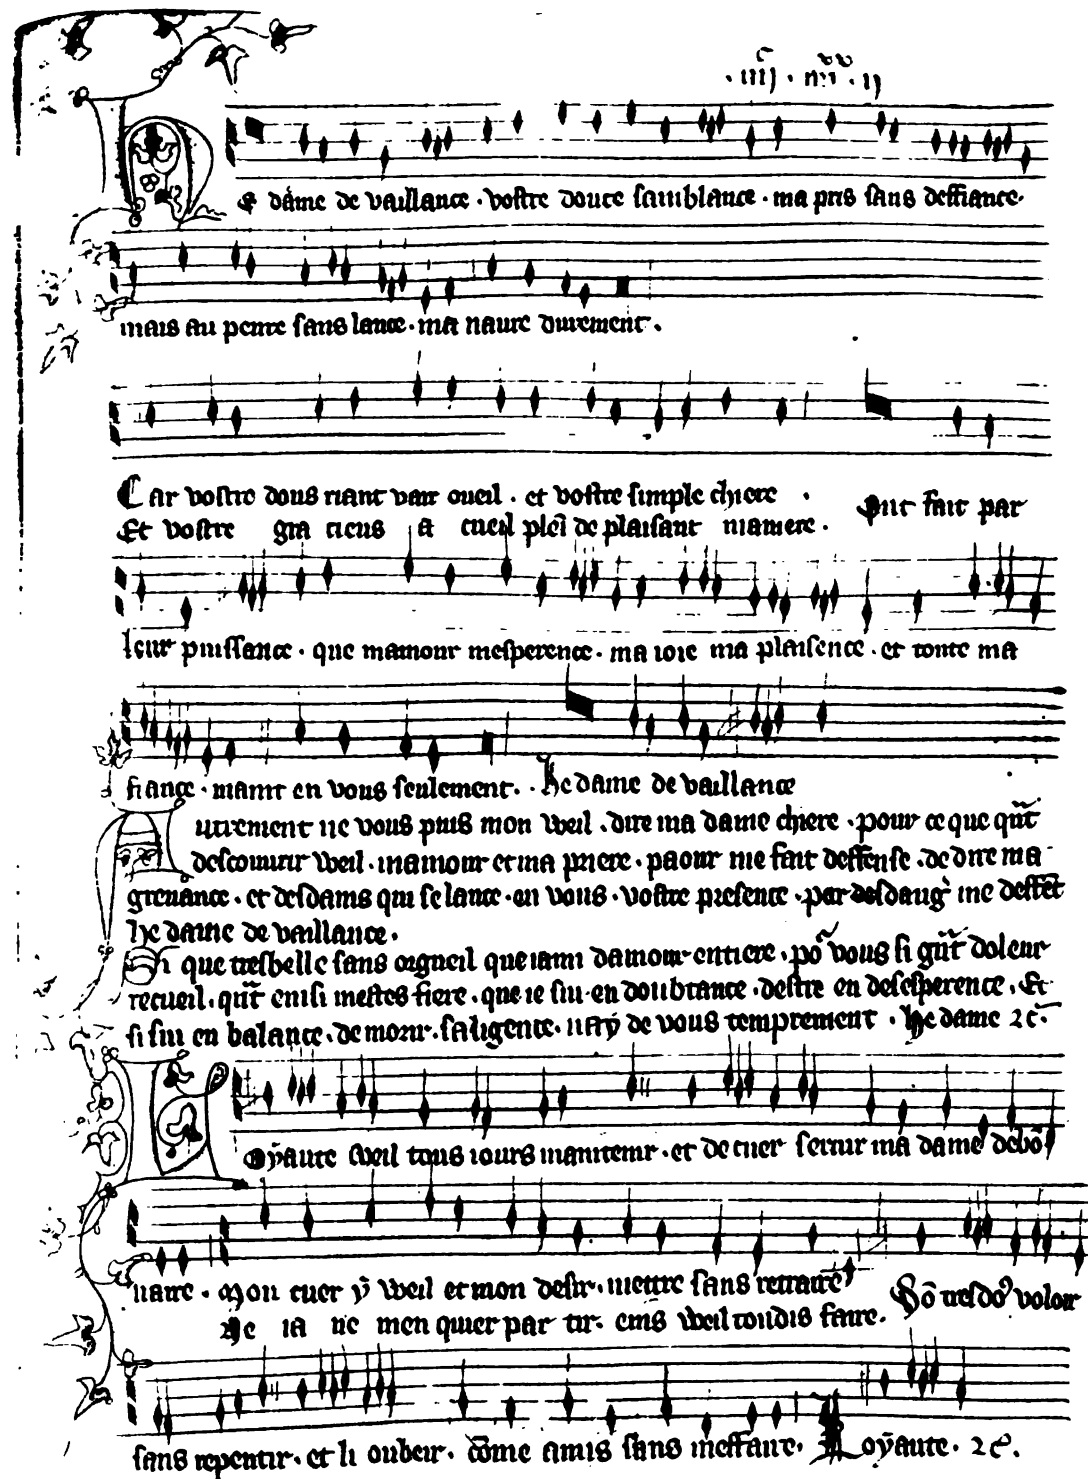 .iiijc. iiijxx. ij
He dame de vaillance . vostre douce samblance . ma pris sans deffiance .
mais au penre sans lance . ma naure durement .
Car vostre dous riant vair oueil . et vostre simple chiere . Ont fait par
Et vostre gra cieus a cueil plei de plaisant maniere .
leur puissance . que mamour mesperence . ma ioie ma plaisence . et toute ma
fiance . maint en vous seulement . He dame de vaillance
Autrement ne vous puis mon weil . dire ma dame chiere . pour ce que qnt
descouurir weil . mamour et ma priere . paour me fait deffense . de dire ma
greuance . et desdains qui se lance . en vous . vostre presence . par desdang me deffet
he dame de vaillance .
Si que tresbelle sans orgueil que iaim damour entiere . po vous si gnt doleur
recueil . qnt ensi mestes fiere . que ie sui en doubtance . destre en desesperence . Et
si sui en balance . de morir . saligence . nay de vous temprement . He dame 2c.
Loyaute weil tous iours maintenir . et de cuer seruir ma dame debo
naire . Mon cuer y weil et mon desir . mettre sans retraire So tresdo voloir
Ne ia ne men quier par tir . eins weil toudis faire .
sans repentir . et li oubeir . come amis sans meffaire . Loyaute . 2c .